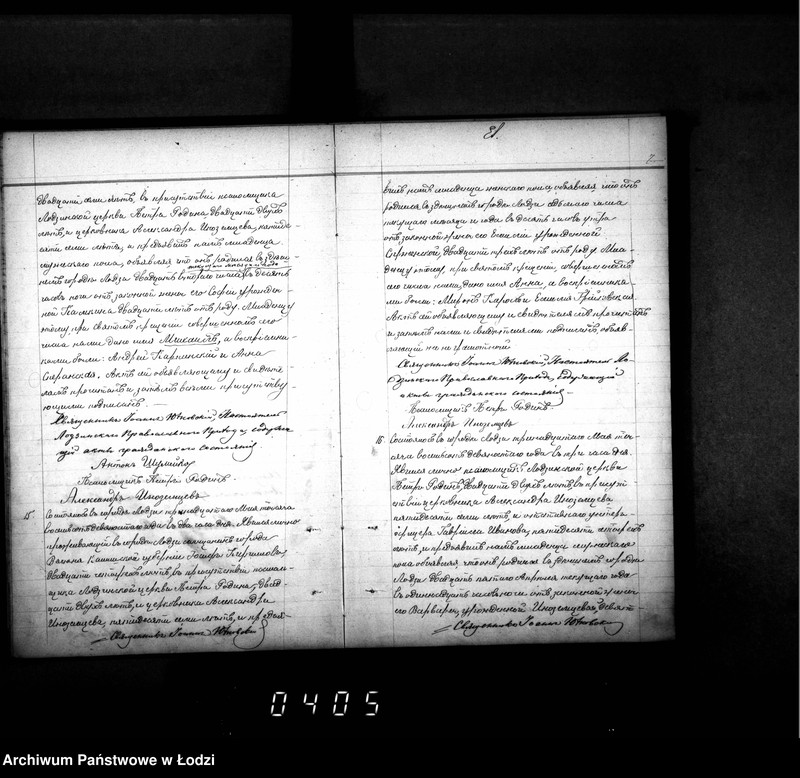 двадцати семи летъ, въ присутствіи псаломщика
Лодзинской церкви Петра Родина двадцати двухъ
летъ, и церковника Александра Иноземцева, пятиде-
сяти семи летъ, и предъявилъ намъ младенца
мужескаго пола, объявляя что онъ родился въ здѣш-
немъ городѣ Лодзи двадцать втораго
текущаго месяца и года
часовъ ночи отъ законной жены его Софіи урожден-
ной двадцати летъ отъ роду. Младенцу
этому при святомъ крещеніи совершенномъ его
числа нами, дано имя Михаилъ, а воспріемни-
ками были: Андрей Карпинскій и Анна
Сиранская. Актъ сей объявляющему и свидете-
лямъ прочитанъ и затемъ всеми присутству-
ющими подписанъ.
Священникъ Іоаннъ Юновскій, Настоятель
Лодзинскаго Православнаго Прихода, содержа-
щій акты гражданскаго состоянія.
Антонъ
Псаломщикъ Петръ Родинъ
Александръ Иноземцевъ
15. Состоялось въ городе Лодзи тринадцатаго Мая тысяча
восемьсотъ девяностаго года въ два часа дня. Явился лично
проживающій въ городе Лодзи мещанинъ города
губерніи
двадцати четырехъ летъ, въ присутствіи псалом-
щика Лодзинской церкви Петра Родина, двад-
цати двухъ летъ, и церковника Александра
Иноземцева, пятидесяти семи летъ, и предъя-
Священникъ Іоаннъ Юновскій
7.
вилъ намъ младенца женскаго пола, объявляя, что онъ
родился въ здѣшнемъ городе Лодзи седьмаго числа
текущаго месяца и года въ десять часовъ утра
отъ законной жены его Емиліи урожденной
двадцати трехъ летъ отъ роду. Мла-
денцу этому, при святомъ крещеніи, совершенномъ
его числа нами, дано имя Анна, а воспріемника-
ми были: и Емилія
Актъ сей объявляющему и свидетелямъ прочитанъ
и затемъ нами и свидетелями подписанъ, объяв-
ляющій же не грамотной
Священникъ Іоаннъ Юновскій, Настоятель Ло-
дзинскаго Православнаго Прихода, содержащій
акты гражданскаго состоянія
Псаломщикъ Петръ Родинъ
Александръ Иноземцевъ
16. Состоялось въ городе Лодзи тринадцатаго Мая ты-
сяча восемьсотъ девяностаго года въ три часа дня.
Явился лично псаломщикъ Лодзинской церкви
Петръ Родинъ, двадцати двухъ летъ, въ присут-
ствіи церковника Александра Иноземцева
пятидесяти семи летъ, и отставнаго унтеръ-о-
фицера Гавріила Иванова, пятидесяти четырехъ
летъ, и предъявилъ намъ младенца мужскаго
пола объявляя, что онъ родился въ здѣшнемъ городе
Лодзи двадцать пятаго Апреля текущаго года
въ одиннадцать часовъ ночи отъ законной жены
его Варвары, урожденной Иноземцевой, девят-
Священникъ Іоаннъ Юновскій
0405
Archiwum Państwowe w Łodzi